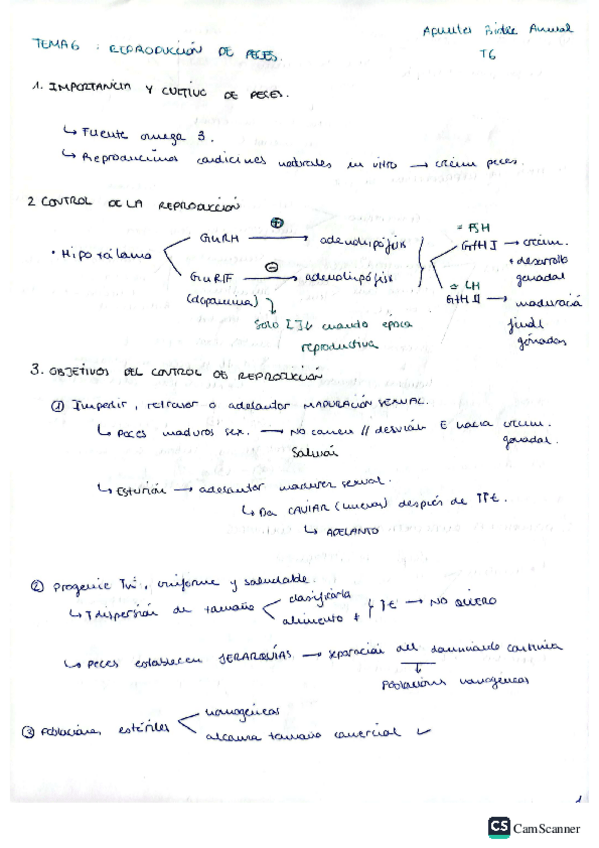 Apuntes Biotec Animal
T6
TEMA 6 : REPRODUCCIÓN DE PECES.
1. IMPORTANCIA Y CULTIVO DE PECES.
↳ Fuente omega 3.
↳ Reproducimos condiciones naturales in vitro → crecim peces.
2 CONTROL DE LA REPRODUCCIÓN
• Hipotálamo
GnRH ⊕ → adenohipófisis
GnRIF ⊖ → adenohipófisis
(dopamina)
Solo [ ]↓ cuando época
reproductiva
= FSH
GtH I → crecim.
+ desarrollo
gonadal
= LH
GtH II → maduració
final
gónadas
3. OBJETIVOS DEL CONTROL DE REPRODUCCIÓN
① Impedir, retrasar o adelantar MADURACIÓN SEXUAL.
↳ Peces maduros sex. → NO comen // desvían E hacia crecim.
gonadal.
Salmón
↳ Esturión → adelantar madurez sexual.
↳ Da CAVIAR (huevas) después de
↳ ADELANTO
② Progenie, uniforme y saludable.
↳ ↑ dispersión de tamaño
clasificarla
alimento +
↑t → NO QUIERO
↳ Peces establecen JERARQUÍAS → separación del dominante continua
Poblaciones homogéneas
③ Poblaciones estériles
homogéneas
alcanza tamaño comercial ✓
1
CS CamScanner